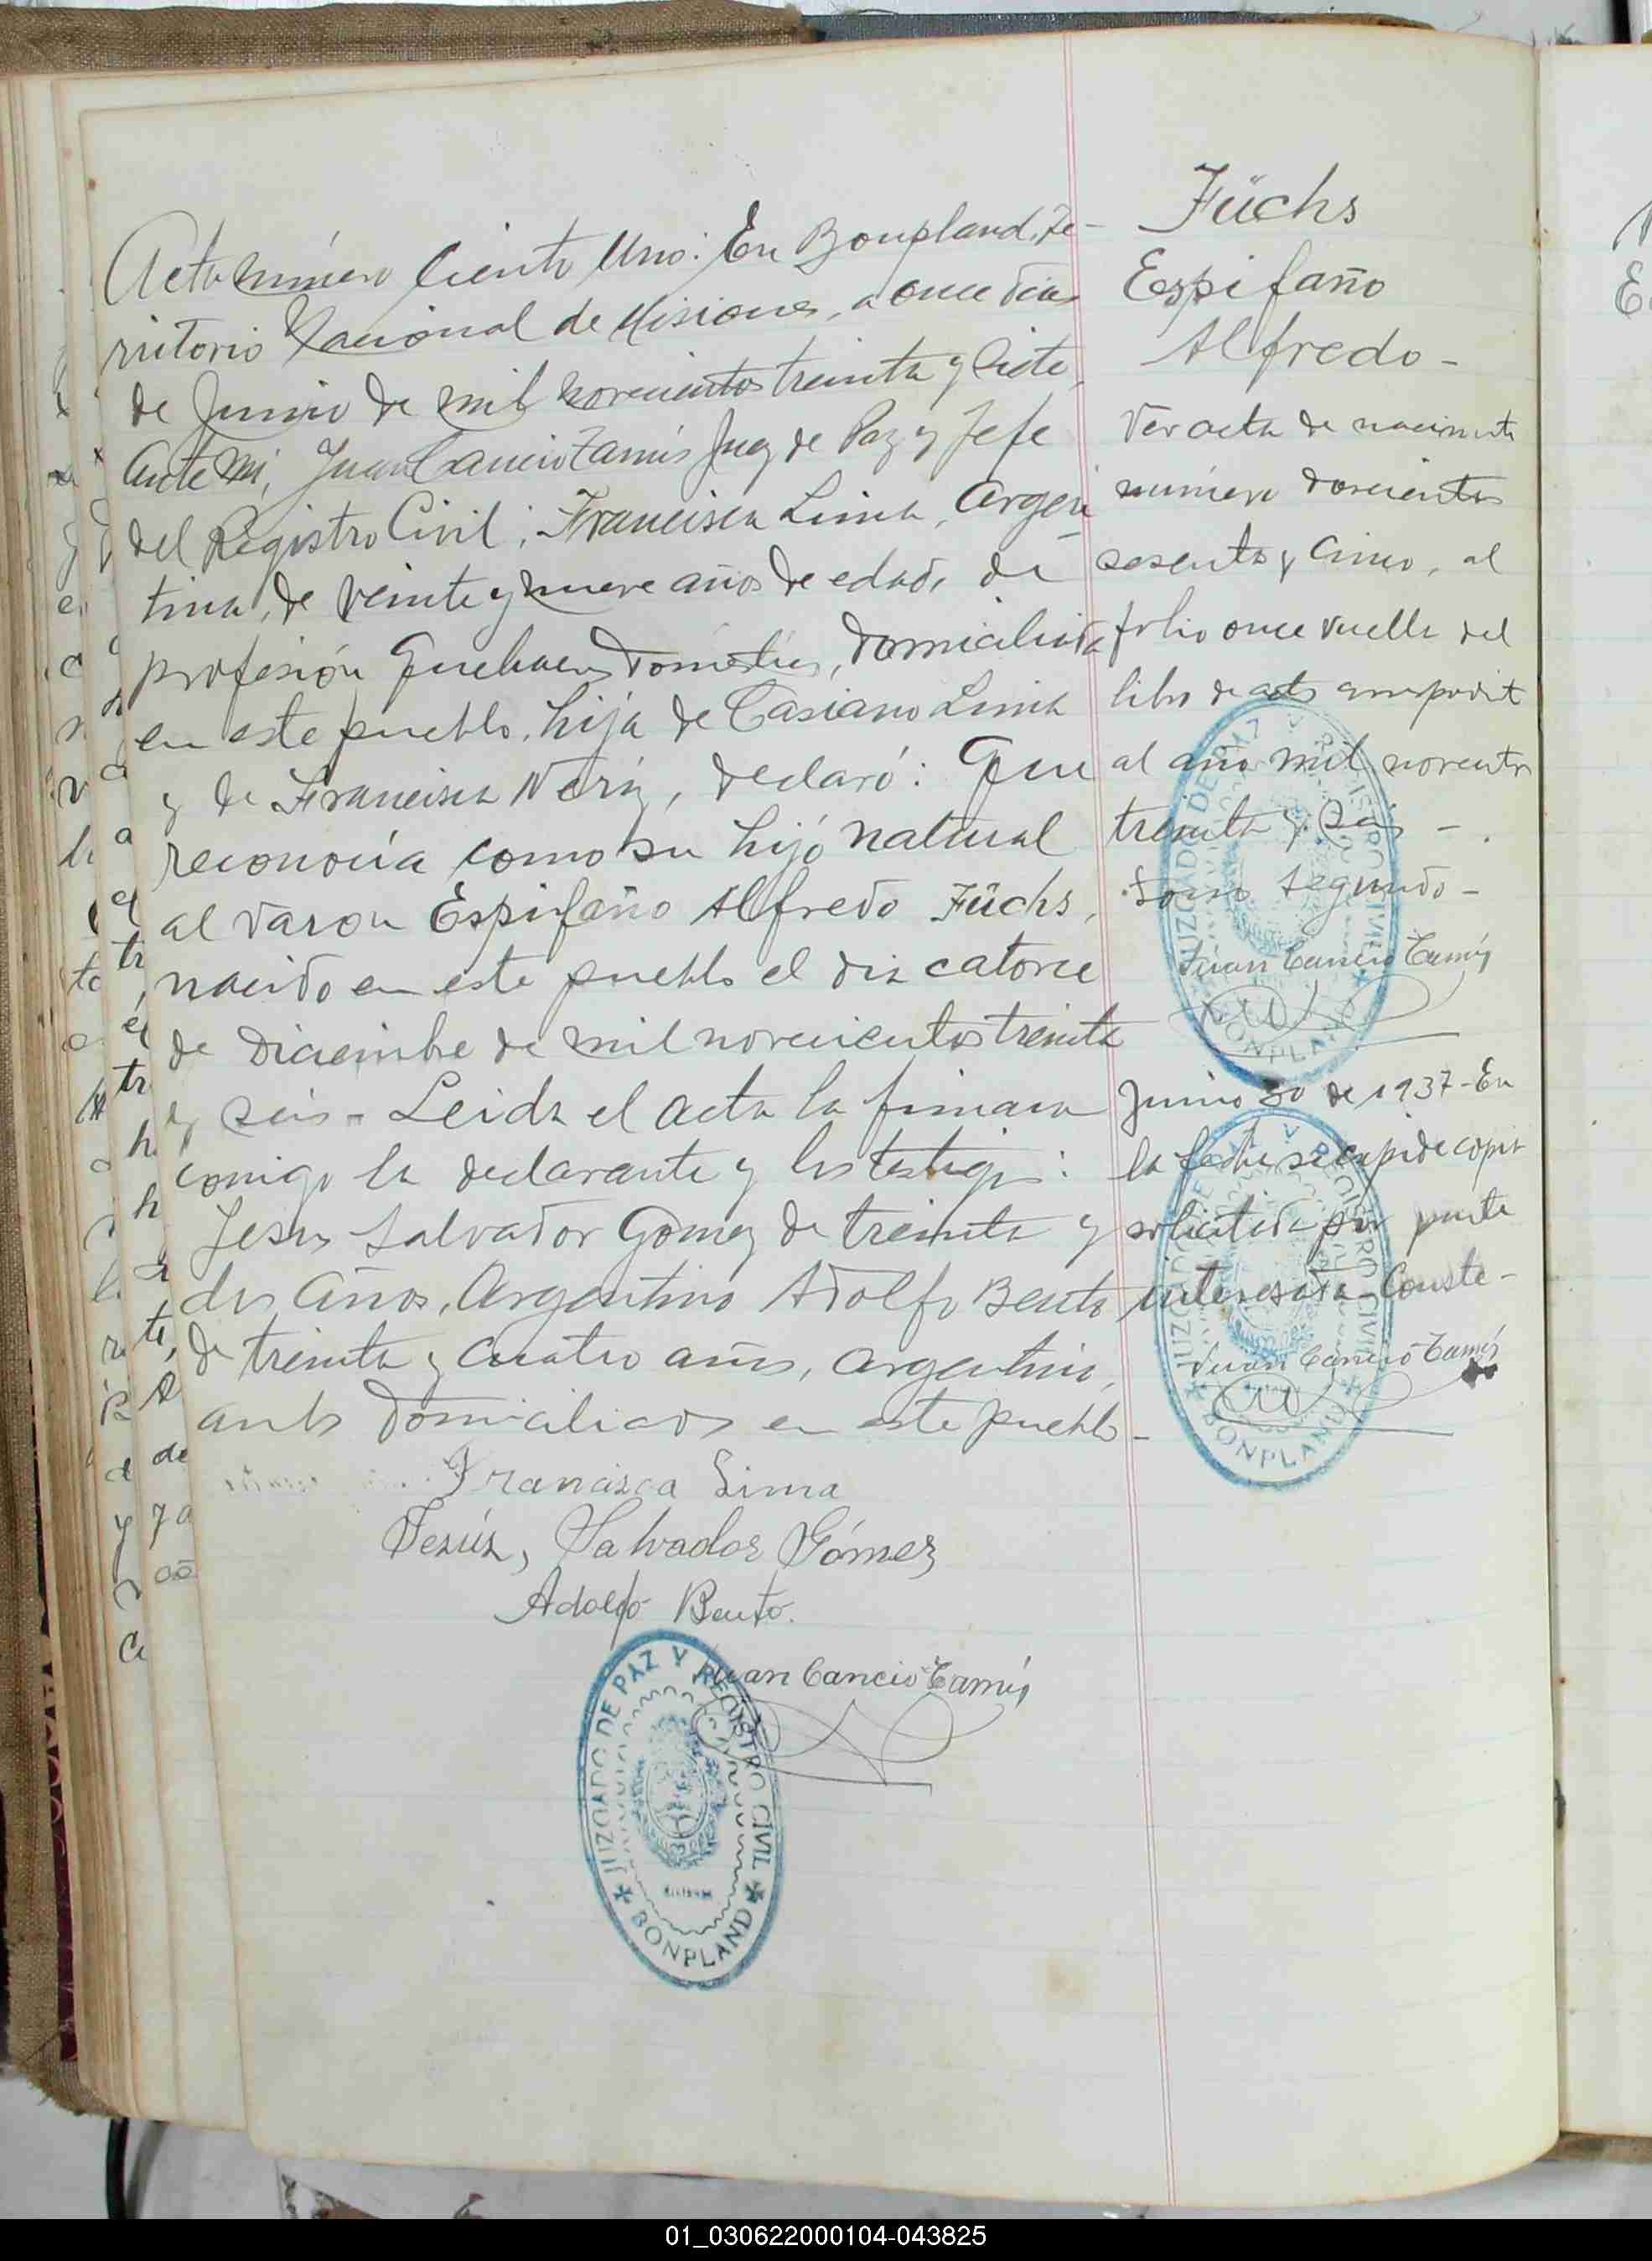 Acta número Ciento Uno: En Bonpland, Te-
rritorio Nacional de Misiones, a once dias
de Junio de mil novecientos treinta y siete,
Ante Mi, Juan Cancio Tamis Juez de Paz y Jefe
del Registro Civil; Francisca Lima, Argen
tina, de veinte y nueve años de edad, de
profesión Quehaceres domésticos, domiciliada
en este pueblo, hija de Casiano Lima
y de Francisca Neriz, declaró: Que
reconocia como su hijo natural
al varon Espifaño Alfredo Füchs,
nacido en este pueblo el dia catorce
de Diciembre de mil novecientos treinta
y seis - Leida el acta la firmara
comigo la declarante y los testigos:
Jesus Salvador Gomez de treinta y
dos años, Argentino Adolfo Bento
de treinta y cuatro años, argentino,
ambos domiciliados en este pueblo -
Francisca Lima
Jesús, Salvador Gómez
Adolfo Bento.
Juan Cancio Tamis
JUZGADO DE PAZ Y REGISTRO CIVIL
BONPLAND
Füchs
Espifaño
Alfredo -
Ver acta de nacimiento
número doscientos
sesenta y cinco, al
folio once vuelta del
libro de actas correspondit
al año mil novecientos
treinta y seis -
Tomo segundo -
Juan Cancio Tamis
JUZGADO DE PAZ Y REGISTRO CIVIL
BONPLAND
Junio 30 de 1937 - En
la fecha se expide copia
solicitada por parte
interesada - Conste -
Juan Cancio Tamis
JUZGADO DE PAZ Y REGISTRO CIVIL
BONPLAND
01_030622000104-043825